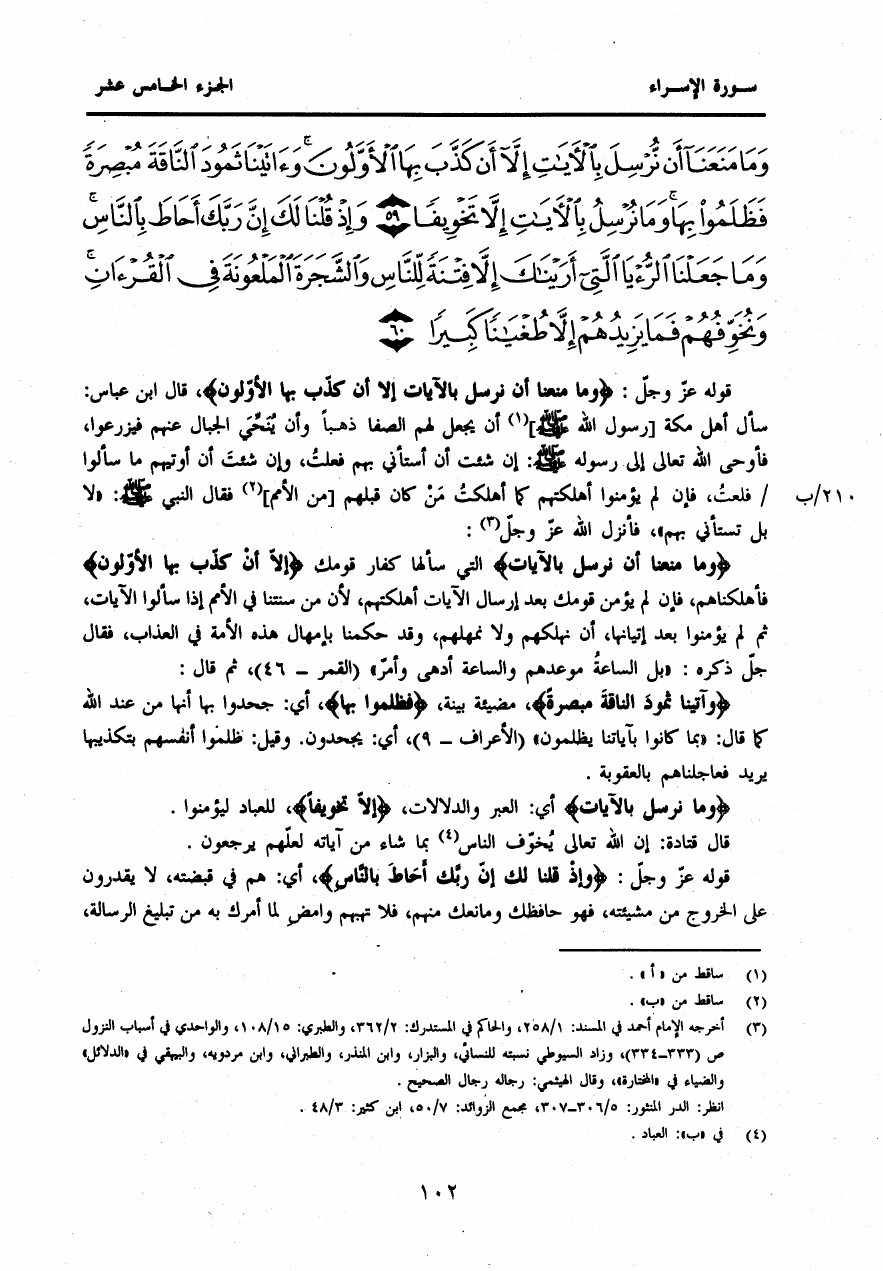 سورة الإسراء
الجزء الخامس عشر
وَمَا مَنَعَنَآ أَن نُّرْسِلَ بِٱلْأَيَـٰتِ إِلَّآ أَن كَذَّبَ بِهَا ٱلْأَوَّلُونَ ۚ وَءَاتَيْنَا ثَمُودَ ٱلنَّاقَةَ مُبْصِرَةً
فَظَلَمُوا۟ بِهَا ۚ وَمَا نُرْسِلُ بِٱلْأَيَـٰتِ إِلَّا تَخْوِيفًا ٥٩ وَإِذْ قُلْنَا لَكَ إِنَّ رَبَّكَ أَحَاطَ بِٱلنَّاسِ ۚ
وَمَا جَعَلْنَا ٱلرُّءْيَا ٱلَّتِىٓ أَرَيْنَـٰكَ إِلَّا فِتْنَةً لِّلنَّاسِ وَٱلشَّجَرَةَ ٱلْمَلْعُونَةَ فِى ٱلْقُرْءَانِ ۚ
وَنُخَوِّفُهُمْ فَمَا يَزِيدُهُمْ إِلَّا طُغْيَـٰنًا كَبِيرًا ٦٠
قوله عزّ وجلّ : ﴿وما منعنا أن نرسل بالآيات إلا أن كذّب بها الأوّلون﴾، قال ابن عباس:
سأل أهل مكة [رسول الله ﷺ](١) أن يجعل لهم الصفا ذهباً وأن يُنَحِّيَ الجبال عنهم فيزرعوا،
فأوحى الله تعالى إلى رسوله ﷺ: إن شئت أن أستأني بهم فعلتُ، وإن شئتَ أن أوتيهم ما سألوا
٢١٠/ب / فلعتُ، فإن لم يؤمنوا أهلكتهم كما أهلكتُ مَنْ كان قبلهم [من الأمم](٢) فقال النبي ﷺ: «لا
بل تستأني بهم»، فأنزل الله عزّ وجلّ(٣) :
﴿وما منعنا أن نرسل بالآيات﴾ التي سألها كفار قومك ﴿إلاّ أنْ كذّب بها الأوّلون﴾
فأهلكناهم، فإن لم يؤمن قومك بعد إرسال الآيات أهلكتهم، لأن من سنتنا في الأمم إذا سألوا الآيات،
ثم لم يؤمنوا بعد إتيانها، أن نهلكهم ولا نمهلهم، وقد حكمنا بإمهال هذه الأمة في العذاب، فقال
جلّ ذكره : «بل الساعةُ موعدهم والساعة أدهى وأمرّ» (القمر – ٤٦)، ثم قال :
﴿وآتينا ثمودَ الناقةَ مبصرةً﴾، مضيئة بينة، ﴿فظلموا بها﴾، أي: جحدوا بها أنها من عند الله
كما قال: «بما كانوا بآياتنا يظلمون» (الأعراف – ٩)، أي: يجحدون. وقيل: ظلمُوا أنفسهم بتكذيبها
يريد فعاجلناهم بالعقوبة .
﴿وما نرسل بالآيات﴾ أي: العبر والدلالات، ﴿إلاّ تخويفاً﴾، للعباد ليؤمنوا .
قال قتادة: إن الله تعالى يُخوّف الناس(٤) بما شاء من آياته لعلّهم يرجعون .
قوله عزّ وجلّ : ﴿وإذْ قلنا لك إنّ ربَّك أَحَاطَ بالنَّاسِ﴾، أي: هم في قبضته، لا يقدرون
على الخروج من مشيئته، فهو حافظك ومانعك منهم، فلا تهبهم وامضِ لما أمرك به من تبليغ الرسالة،
(١) ساقط من «أ» .
(٢) ساقط من «ب» .
(٣) أخرجه الإمام أحمد في المسند: ٢٥٨/١، والحاكم في المستدرك: ٣٦٢/٢، والطبري: ١٠٨/١٥، والواحدي في أسباب النزول
ص (٣٣٣–٣٣٤)، وزاد السيوطي نسبته للنسائي، والبزار، وابن المنذر، والطبراني، وابن مردويه، والبيهقي في «الدلائل»
والضياء في «المختارة»، وقال الهيثمي: رجاله رجال الصحيح .
انظر: الدر المنثور: ٣٠٦/٥–٣٠٧، مجمع الزوائد: ٥٠/٧، ابن كثير: ٤٨/٣ .
(٤) في «ب»: العباد .
١٠٢